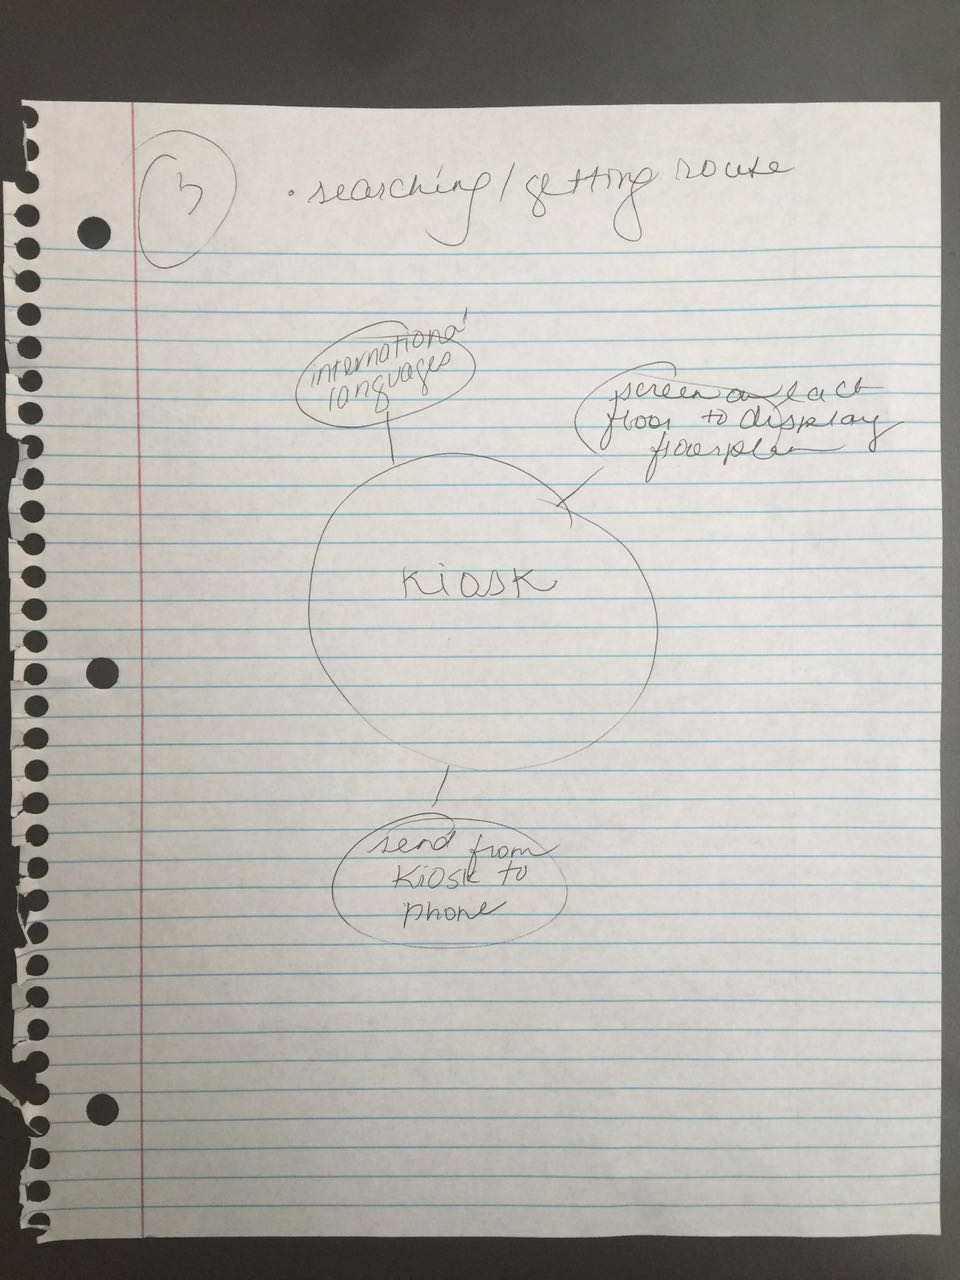 • searching/getting route
international
languages
screen on each
floor to display
floorplan
Kiosk
send from
Kiosk to
phone